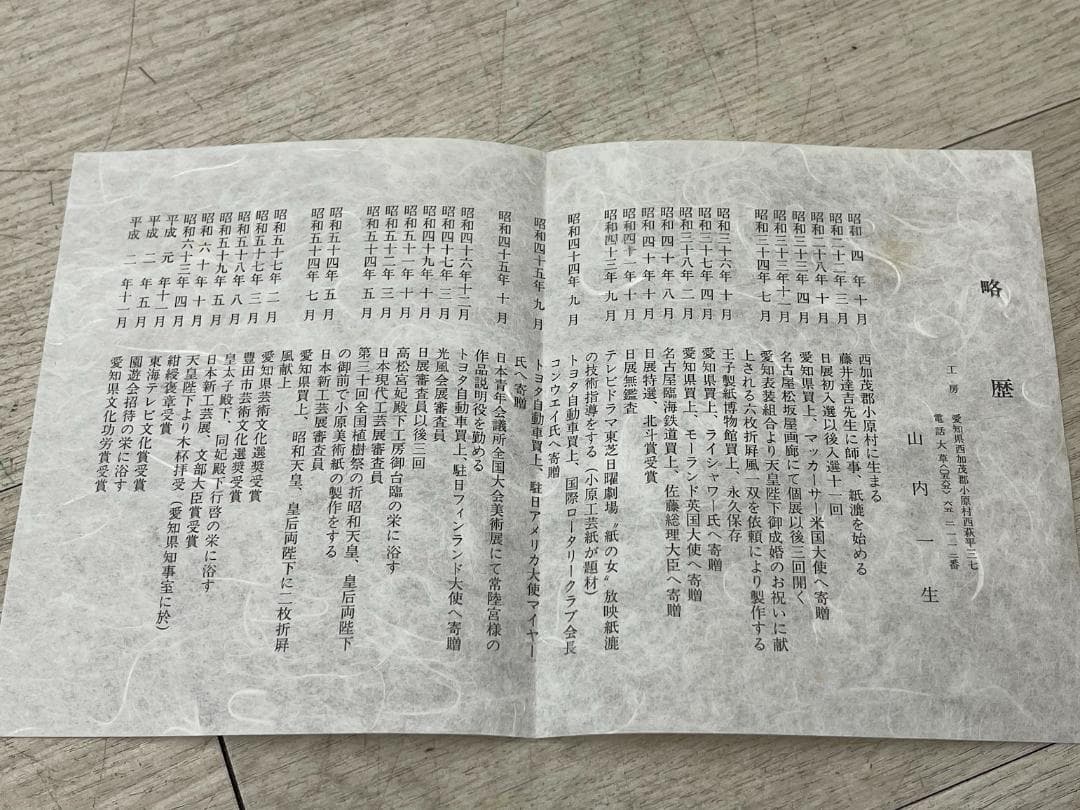 略歴
工房 愛知県西加茂郡小原村西萩平三七
電話 大草〈〇五六〉六五 二一一三番
山内一生
昭和四年十月 西加茂郡小原村に生まる
昭和二十二年三月 藤井達吉先生に師事、紙漉を始める
昭和二十八年十月 日展初入選以後入選十一回
昭和三十三年四月 愛知県買上、マッカーサー米国大使へ寄贈
昭和三十三年十二月 名古屋松坂屋画廊にて個展以後三回開く
昭和三十四年七月 愛知表装組合より天皇陛下御成婚のお祝いに献
上される六枚折屛風一双を依頼により製作する
昭和三十六年十月 王子製紙博物館買上、永久保存
昭和三十七年四月 愛知県買上、ライシャワー氏へ寄贈
昭和三十八年二月 愛知県買上、モーランド英国大使へ寄贈
昭和四十年八月 名古屋臨海鉄道買上、佐藤総理大臣へ寄贈
昭和四十年十月 日展特選、北斗賞受賞
昭和四十一年十月 日展無鑑査
昭和四十三年九月 テレビドラマ東芝日曜劇場〝紙の女〟放映紙漉
の技術指導をする（小原工芸紙が題材）
昭和四十四年九月 トヨタ自動車買上、国際ロータリークラブ会長
コンウエイ氏へ寄贈
昭和四十五年九月 トヨタ自動車買上、駐日アメリカ大使マイヤー
氏へ寄贈
昭和四十五年十月 日本青年会議所全国大会美術展にて常陸宮様の
作品説明役を勤める
昭和四十六年十二月 トヨタ自動車買上、駐日フィンランド大使へ寄贈
昭和四十七年三月 光風会展審査員
昭和四十九年十月 日展審査員以後三回
昭和五十一年十月 高松宮妃殿下工房御台臨の栄に浴す
昭和五十二年三月 日本現代工芸展審査員
昭和五十四年五月 第三十回全国植樹祭の折昭和天皇、皇后両陛下
の御前で小原美術紙の製作をする
昭和五十四年五月 日本新工芸展審査員
昭和五十四年七月 愛知県買上、昭和天皇、皇后両陛下に二枚折屛
風献上
昭和五十七年二月 愛知県芸術文化選奨受賞
昭和五十七年三月 豊田市芸術文化選奨受賞
昭和五十八年八月 皇太子殿下、同妃殿下行啓の栄に浴す
昭和五十九年五月 日本新工芸展、文部大臣賞受賞
昭和六十年十月 天皇陛下より木杯拝受（愛知県知事室に於）
昭和六十三年四月 紺綬褒章受賞
平成元年十一月 東海テレビ文化賞受賞
平成二年五月 園遊会招待の栄に浴す
平成二年十一月 愛知県文化功労賞受賞